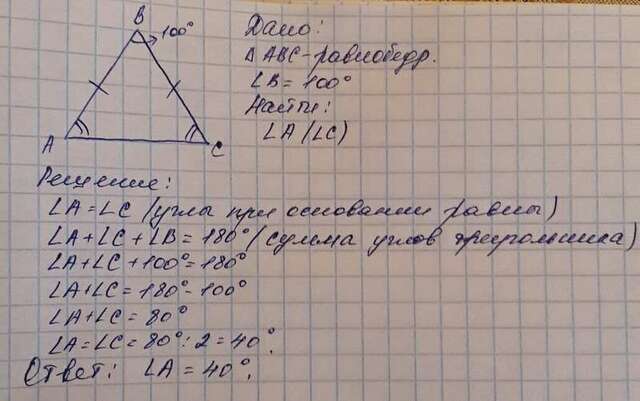 B
100°
A
C
Дано:
Δ ABC - равнобедр.
∠B = 100°
Найти:
∠A (∠C)
Решение:
∠A = ∠C (углы при основании равны)
∠A + ∠C + ∠B = 180° (сумма углов треугольника)
∠A + ∠C + 100° = 180°
∠A + ∠C = 180° - 100°
∠A + ∠C = 80°
∠A = ∠C = 80° : 2 = 40°.
Ответ: ∠A = 40°.